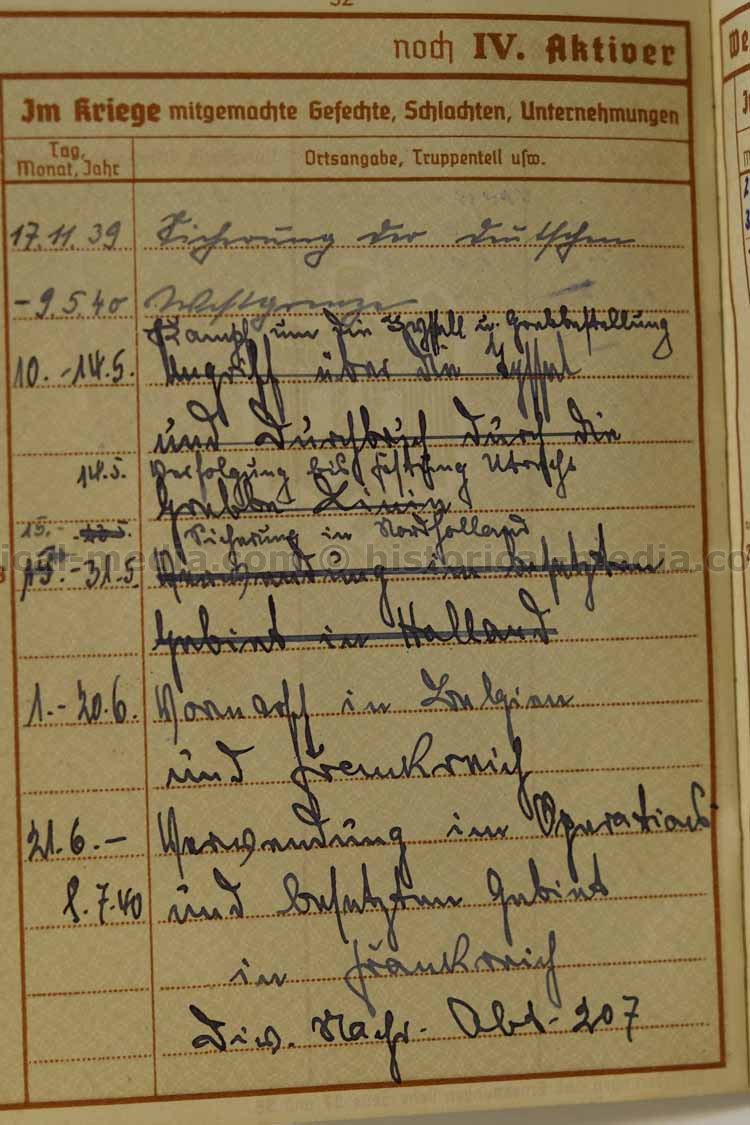 32
noch IV. Aktiver
Im Kriege mitgemachte Gefechte, Schlachten, Unternehmungen
Tag, Monat, Jahr
Ortsangabe, Truppenteil usw.
17.11.39 Sicherung der deutschen
- 9.5.40 Westgrenze
Kampf um die Yssel u. Grebbestellung
10. - 14.5. Angriff über die Yssel
und Durchbruch durch die
14.5. Verfolgung bis Festung Utrecht
Grebbe Linie
15. - Sicherung in Nordholland
15. - 31.5. Verwendung im besetzten
Gebiet in Holland
1. - 20.6. Vormarsch in Belgien
und Frankreich
21.6. - Verwendung im Operations-
8.7.40 und besetzten Gebiet
in Frankreich
Div. Nachr. Abt. 207
© historical-media.com